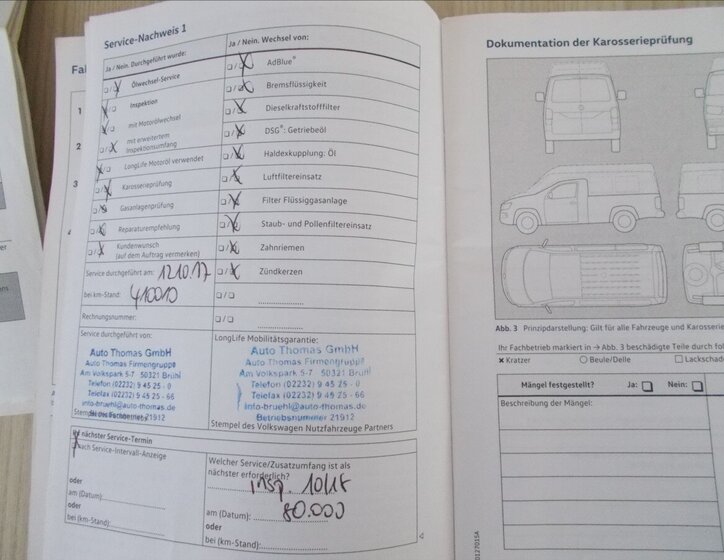 Service-Nachweis 1
Ja / Nein. Durchgeführt wurde:
Ölwechsel-Service
Inspektion
mit Motorölwechsel
mit erweitertem
Inspektionsumfang
LongLife Motoröl verwendet
Karosserieprüfung
Gasanlagenprüfung
Reparaturempfehlung
Kundenwunsch
(auf dem Auftrag vermerken)
Service durchgeführt am: 12.10.17
bei km-Stand: 41000
Rechnungsnummer:
Service durchgeführt von:
Auto Thomas GmbH
Auto Thomas Firmengruppe
Am Volkspark 5-7 50321 Brühl
Telefon (02232) 9 45 25 - 0
Telefax (02232) 9 45 25 - 66
info-bruehl@auto-thomas.de
Betriebsnummer 21912
Ja / Nein. Wechsel von:
AdBlue®
Bremsflüssigkeit
Dieselkraftstofffilter
DSG®: Getriebeöl
Haldexkupplung: Öl
Luftfiltereinsatz
Filter Flüssiggasanlage
Staub- und Pollenfiltereinsatz
Zahnriemen
Zündkerzen
LongLife Mobilitätsgarantie:
Auto Thomas GmbH
Auto Thomas Firmengruppe
Am Volkspark 5-7 50321 Brühl
Telefon (02232) 9 45 25 - 0
Telefax (02232) 9 45 25 - 66
info-bruehl@auto-thomas.de
Betriebsnummer 21912
Stempel des Volkswagen Nutzfahrzeuge Partners
nächster Service-Termin
nach Service-Intervall-Anzeige
oder
am (Datum):
oder
bei (km-Stand):
Welcher Service/Zusatzumfang ist als
nächster erforderlich?
Insp. 10/18
am (Datum): 80.000
oder
bei (km-Stand):
Fa
1
2
3
Dokumentation der Karosserieprüfung
Abb. 3 Prinzipdarstellung: Gilt für alle Fahrzeuge und Karosserie
Ihr Fachbetrieb markiert in → Abb. 3 beschädigte Teile durch fol
Kratzer Beule/Delle Lackschade
Mängel festgestellt? Ja: Nein:
Beschreibung der Mängel: